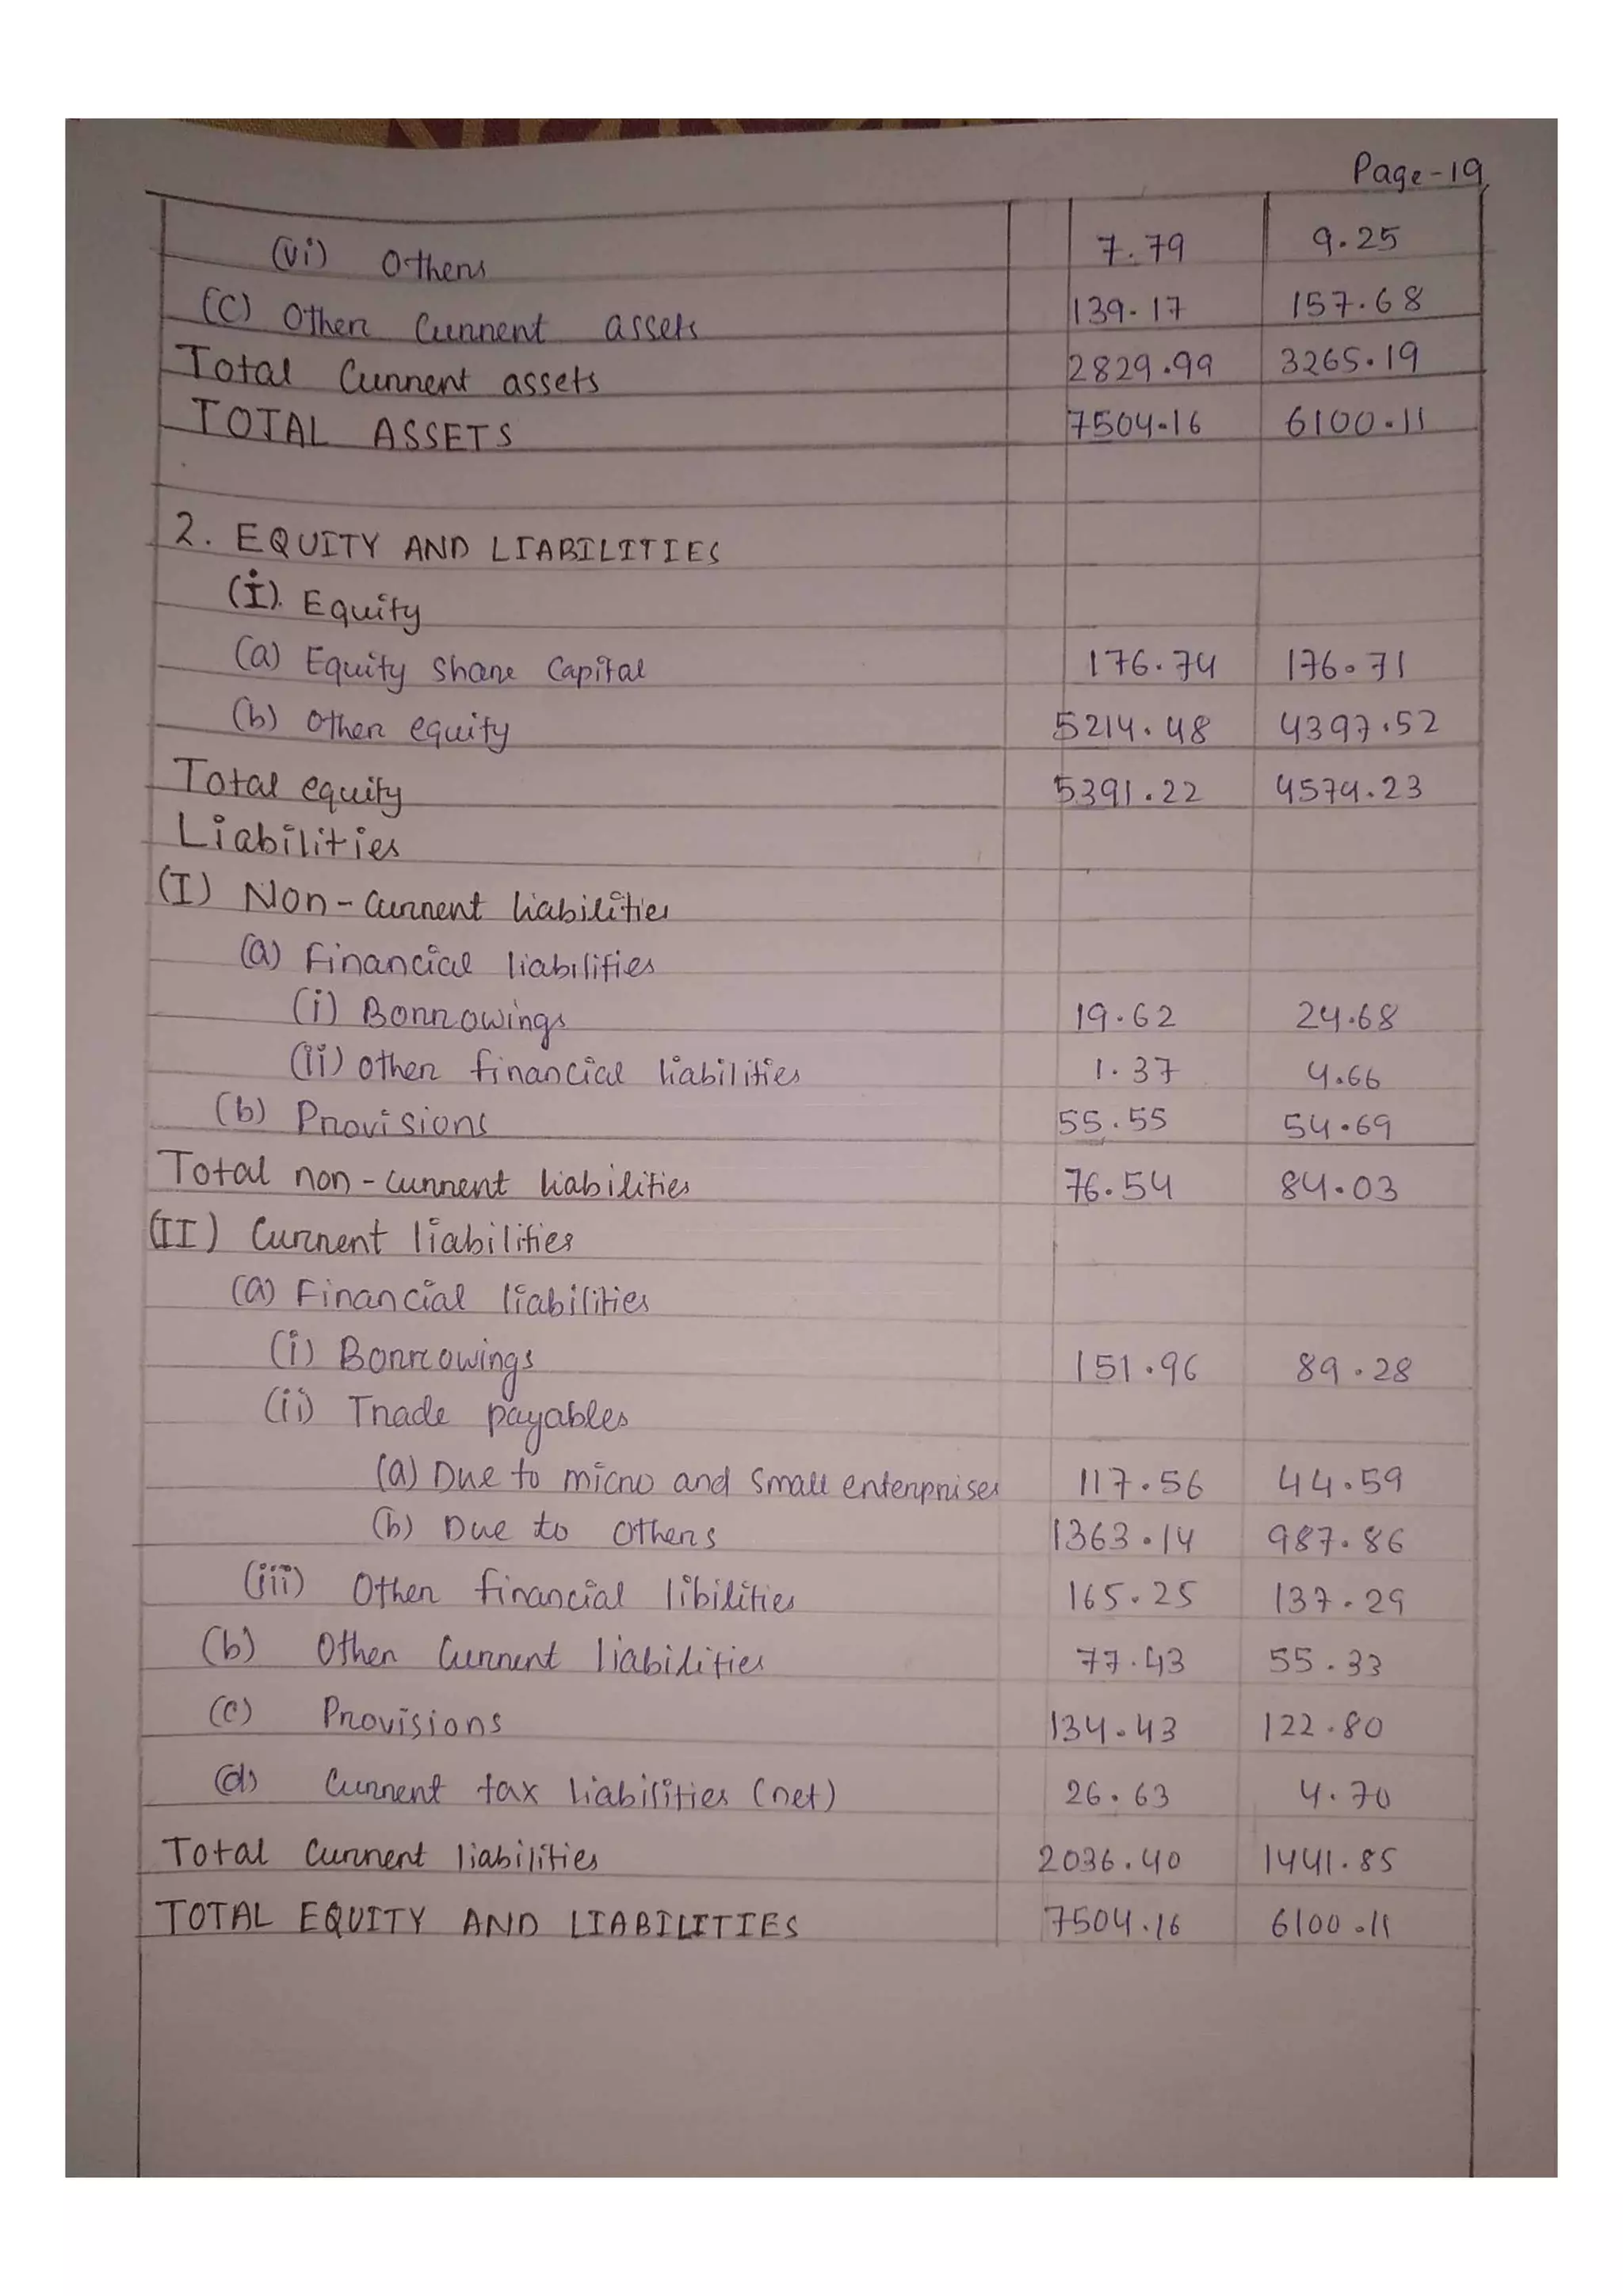 Page-19
(vi) Others 7.79 9.25
(C) Other Current assets 139.17 157.68
Total Current assets 2829.99 3265.19
TOTAL ASSETS 7504.16 6100.11
2. EQUITY AND LIABILITIES
(I). Equity
(a) Equity Share Capital 176.74 176.71
(b) Other equity 5214.48 4397.52
Total equity 5391.22 4574.23
Liabilities
(I) Non-Current liabilities
(a) Financial liabilities
(i) Borrowings 19.62 24.68
(ii) other financial liabilities 1.37 4.66
(b) Provisions 55.55 54.69
Total non-current liabilities 76.54 84.03
(II) Current liabilities
(a) Financial liabilities
(i) Borrowings 151.96 89.28
(ii) Trade payables
(a) Due to micro and Small enterprises 117.56 44.59
(b) Due to others 1363.14 987.86
(iii) Other financial libilities 165.25 137.29
(b) Other Current liabilities 77.43 55.33
(c) Provisions 134.43 122.80
(d) Current tax liabilities (net) 26.63 4.70
Total Current liabilities 2036.40 1441.85
TOTAL EQUITY AND LIABILITIES 7504.16 6100.11